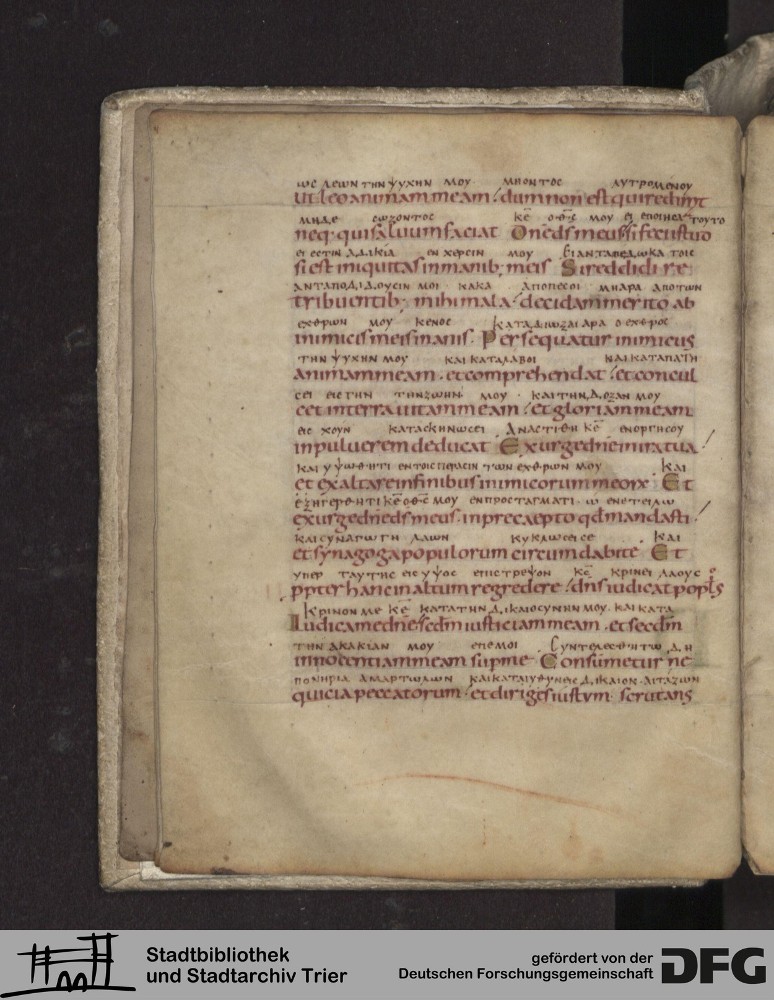 ωc λεων την ψυχην μου· μηοντοc λυτρομενου
ut leo animam meam dum non est qui redimat
μηδε cωζοντοc κε̅ ο θ̅c̅ μου ει εποιηcα τουτο
neq· qui saluum faciat One d̅s̅ meus si feci istud
ει εcτιν αδικια εν χερcιν μου Ει ανταπεδωκα τοιc
si est iniquitas in manib; meis Si reddidi re
ανταποδιδουcιν μοι κακα αποπεcοι μηαρα απο των
tribuentib; mihi mala decidam merito ab
εχθρων μου κενοc Καταδιωξαι αρα ο εχθροc
inimicis meis inanis· Persequatur inimicus
την ψυχην μου και καταλαβοι και καταπατη
animam meam· et comprehendat et concul
cει ειc την την ζωην μου· και την δοξαν μου
cet in terra uitam meam et gloriam meam
ειc χουν καταcκηνωcει Αναcτιθη κε̅ εν οργη cου
in puluerem deducat Exurge dn̅e in ira tua
και υψωθητι εν τοιc περαcιν των εχθρων μου Και
et exaltare in finibus inimicorum meorx Et
εξηγερθητι κε̅ ο θ̅c̅ μου εν προcταγματι· ω ενετειλω
exurge dn̅e d̅s̅ meus· in precaepto qd̅ mandasti
και cυναγωγη λαων κυκλωcει cε Και
et synagoga populorum circumdabit te Et
υπερ ταυτηc ειc υψοc επιcτρεψον κc̅ κρινει λαουc
ppter hanc in altum regredere dn̅s iudicat popl̅s
Κρινον με κε̅ κατα την δικαιοcυνην μου· και κατα
Iudica me dn̅e sed̅m iusticiam meam· et secd̅m
την ακακιαν μου επ εμοι Cυντελεcθητω δη
innocentiam meam sup me Consumetur ne
πονηρια αμαρτωλων και κατευθυνειc δικαιον· αιταζων
quicia peccatorum et diriges iustum· scrutans
Stadtbibliothek
und Stadtarchiv Trier
gefördert von der
Deutschen Forschungsgemeinschaft DFG